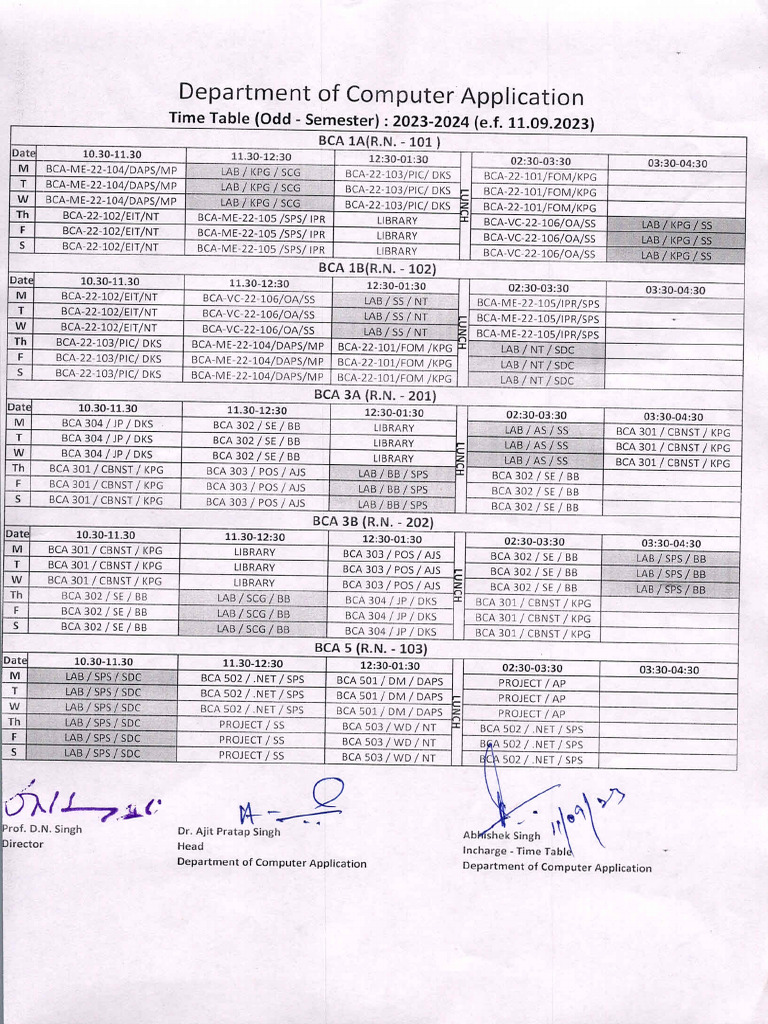 Department of Computer Application
Time Table (Odd - Semester) : 2023-2024 (e.f. 11.09.2023)
BCA 1A(R.N. - 101 )
Date 10.30-11.30 11.30-12:30 12:30-01:30 LUNCH 02:30-03:30 03:30-04:30
M BCA-ME-22-104/DAPS/MP LAB / KPG / SCG BCA-22-103/PIC/ DKS BCA-22-101/FOM/KPG
T BCA-ME-22-104/DAPS/MP LAB / KPG / SCG BCA-22-103/PIC/ DKS BCA-22-101/FOM/KPG
W BCA-ME-22-104/DAPS/MP LAB / KPG / SCG BCA-22-103/PIC/ DKS BCA-22-101/FOM/KPG
Th BCA-22-102/EIT/NT BCA-ME-22-105 /SPS/ IPR LIBRARY BCA-VC-22-106/OA/SS LAB / KPG / SS
F BCA-22-102/EIT/NT BCA-ME-22-105 /SPS/ IPR LIBRARY BCA-VC-22-106/OA/SS LAB / KPG / SS
S BCA-22-102/EIT/NT BCA-ME-22-105 /SPS/ IPR LIBRARY BCA-VC-22-106/OA/SS LAB / KPG / SS
BCA 1B(R.N. - 102)
Date 10.30-11.30 11.30-12:30 12:30-01:30 LUNCH 02:30-03:30 03:30-04:30
M BCA-22-102/EIT/NT BCA-VC-22-106/OA/SS LAB / SS / NT BCA-ME-22-105/IPR/SPS
T BCA-22-102/EIT/NT BCA-VC-22-106/OA/SS LAB / SS / NT BCA-ME-22-105/IPR/SPS
W BCA-22-102/EIT/NT BCA-VC-22-106/OA/SS LAB / SS / NT BCA-ME-22-105/IPR/SPS
Th BCA-22-103/PIC/ DKS BCA-ME-22-104/DAPS/MP BCA-22-101/FOM /KPG LAB / NT / SDC
F BCA-22-103/PIC/ DKS BCA-ME-22-104/DAPS/MP BCA-22-101/FOM /KPG LAB / NT / SDC
S BCA-22-103/PIC/ DKS BCA-ME-22-104/DAPS/MP BCA-22-101/FOM /KPG LAB / NT / SDC
BCA 3A (R.N. - 201)
Date 10.30-11.30 11.30-12:30 12:30-01:30 LUNCH 02:30-03:30 03:30-04:30
M BCA 304 / JP / DKS BCA 302 / SE / BB LIBRARY LAB / AS / SS BCA 301 / CBNST / KPG
T BCA 304 / JP / DKS BCA 302 / SE / BB LIBRARY LAB / AS / SS BCA 301 / CBNST / KPG
W BCA 304 / JP / DKS BCA 302 / SE / BB LIBRARY LAB / AS / SS BCA 301 / CBNST / KPG
Th BCA 301 / CBNST / KPG BCA 303 / POS / AJS LAB / BB / SPS BCA 302 / SE / BB
F BCA 301 / CBNST / KPG BCA 303 / POS / AJS LAB / BB / SPS BCA 302 / SE / BB
S BCA 301 / CBNST / KPG BCA 303 / POS / AJS LAB / BB / SPS BCA 302 / SE / BB
BCA 3B (R.N. - 202)
Date 10.30-11.30 11.30-12:30 12:30-01:30 LUNCH 02:30-03:30 03:30-04:30
M BCA 301 / CBNST / KPG LIBRARY BCA 303 / POS / AJS BCA 302 / SE / BB LAB / SPS / BB
T BCA 301 / CBNST / KPG LIBRARY BCA 303 / POS / AJS BCA 302 / SE / BB LAB / SPS / BB
W BCA 301 / CBNST / KPG LIBRARY BCA 303 / POS / AJS BCA 302 / SE / BB LAB / SPS / BB
Th BCA 302 / SE / BB LAB / SCG / BB BCA 304 / JP / DKS BCA 301 / CBNST / KPG
F BCA 302 / SE / BB LAB / SCG / BB BCA 304 / JP / DKS BCA 301 / CBNST / KPG
S BCA 302 / SE / BB LAB / SCG / BB BCA 304 / JP / DKS BCA 301 / CBNST / KPG
BCA 5 (R.N. - 103)
Date 10.30-11.30 11.30-12:30 12:30-01:30 LUNCH 02:30-03:30 03:30-04:30
M LAB / SPS / SDC BCA 502 / .NET / SPS BCA 501 / DM / DAPS PROJECT / AP
T LAB / SPS / SDC BCA 502 / .NET / SPS BCA 501 / DM / DAPS PROJECT / AP
W LAB / SPS / SDC BCA 502 / .NET / SPS BCA 501 / DM / DAPS PROJECT / AP
Th LAB / SPS / SDC PROJECT / SS BCA 503 / WD / NT BCA 502 / .NET / SPS
F LAB / SPS / SDC PROJECT / SS BCA 503 / WD / NT BCA 502 / .NET / SPS
S LAB / SPS / SDC PROJECT / SS BCA 503 / WD / NT BCA 502 / .NET / SPS
11/09/23
Prof. D.N. Singh Dr. Ajit Pratap Singh Abhishek Singh
Director Head Incharge - Time Table
Department of Computer Application Department of Computer Application